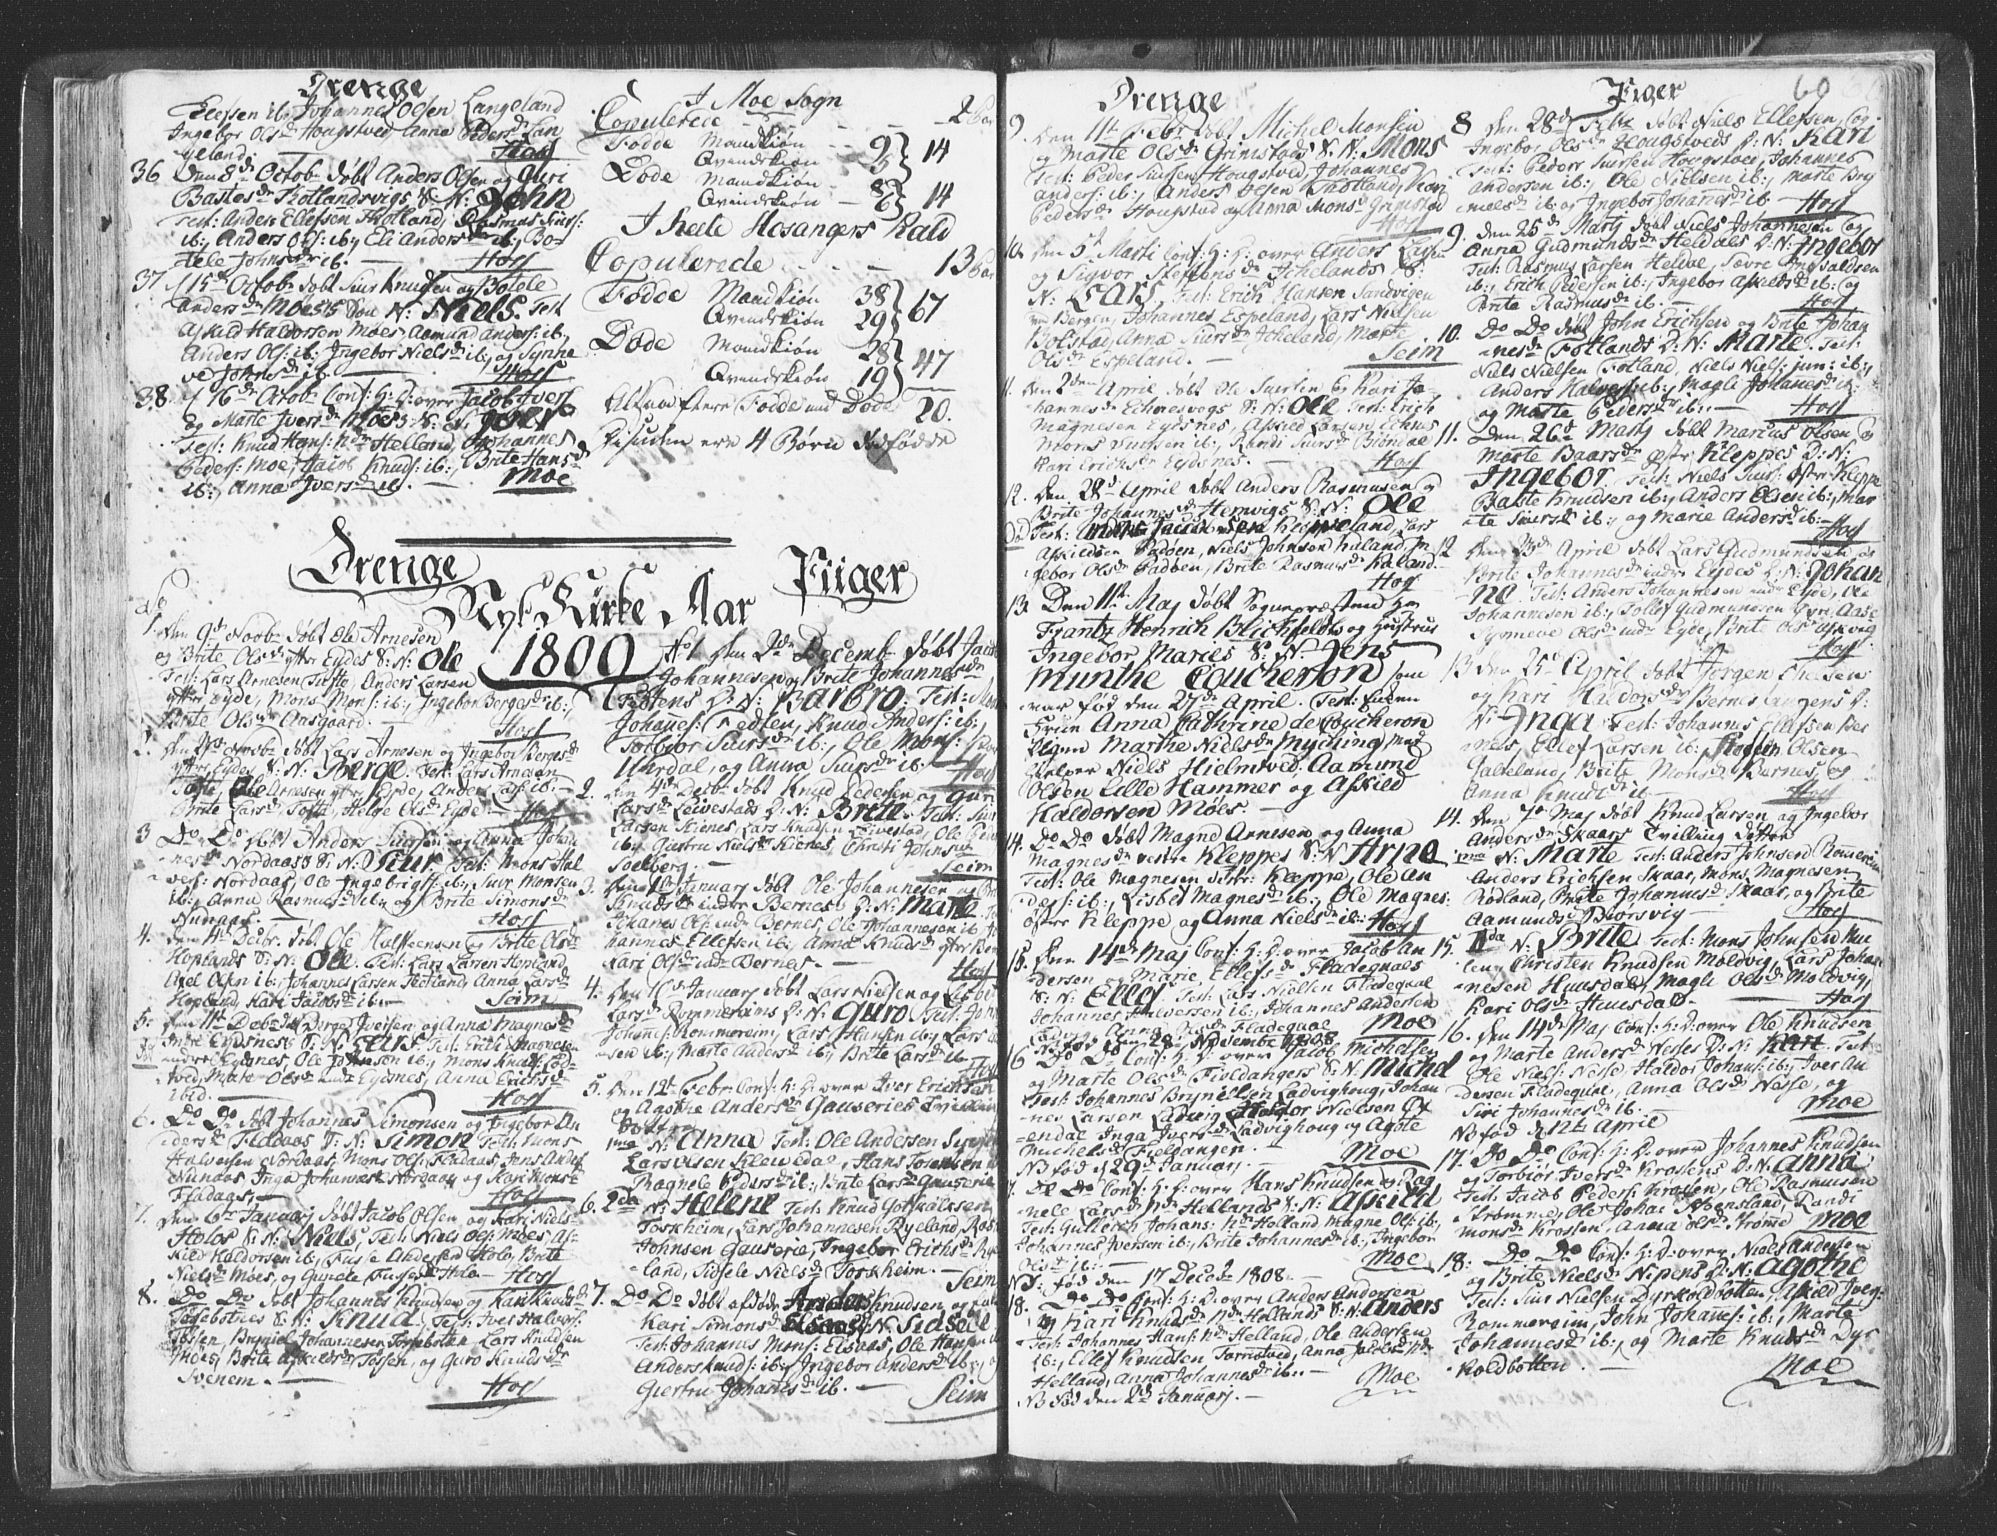 Drenge
Ellefsen ib: Johannes Olsen Langeland
Ingebor Ols d Hougstved, Anna Peders d Lan
geland.
Hosf
36 Den 8de Octob: døbt Anders Olsen og Guri
Bastes d Kotlandsvigs S: N: John
Test: Anders Ellefsen Kotland, Rasmus Siurs:
ib:, Anders Ols: ib:, Eli Anders d ib:, Bo-
tele Johns d ib.
Hosf
37 15 d Octob: døbt Siur Knudsen og Botele
Anders d Moes Søn N: Niels. Test
Askild Haldorsen Moes Aamund Anders: ib:,
Anders Ols: ib:, Ingebor Niels d ib:, og Synne
ve Johns d ib
Hosf
38. Octob: Conf: H: D: over Jacob Ivers
og Marte Ivers d Moes S: N: Iver
Test: Knud Hans: Helland, Johannes
Peders: Moe, Jacob Knuds: ib:, Brite Hans d
ib:, Anna Ivers d ib.
Moe
I Moe Sogn
Copulerede - - - 2 Par
Fødde Mandkiøn - - 9 } 14
Qvindekiøn - 5
Døde Mandkiøn - - 8 } 14
Qvindekiøn - 6
I heele Hosangers Kald
Copulerede - - - 13 Par
Fødde Mandkiøn 38 } 67
Qvindekiøn 29
Døde Mandkiøn 28 } 47
Qvindekiøn 19
Altsaa flere Fødde end Døde 20.
Desuden ere 4 Børn dødfødde
Drenge Piiger
Nyt Kirke Aar
1809
No
1. Den 9 d Novbr døbt Ole Arnesen
og Brite Ols d yttre Eydes S: N: Ole
Test: Lars Arnesen Tofte, Anders Larsen
yttre Eyde, Mons Mons: ib:, Ingebor Berges d ib:,
Brite Ols d Aasgaard.
Hosf
2. Den Novbr døbt Lars Arnesen og Ingebor Berges d
yttre Eydes S: N: Berge. Test: Lars Arnesen
Tofte, Ole Arnesen yttr Eyde, Anders Lars: ib:
Brite Lars d Tofte, Helge Ols d Eyde.
Hosf
3 Do Do døbt Anders Siursen og Anna Johan
nes d Nordaas S: N: Siur. Test: Mons Hal
vers: Nordaas, Ole Ingebrigts: ib:, Siur Monsen
ib:, Anna Rasmus d ib:, og Brite Simons d
Nundaas.
Hosf
4. Den 4 d Decbr. døbt Ole Halsteensen og Brite Ols d
Hoplands S: N: Ole. Test: Lars Larsen Hopland
Axel Olsen ib:, Johannes Larsen Hetland, Anna Lars d
Hopland, Kari Jacobs d ib.
Seim
5. Den 11 t Decbr Berge Iversen og Anna Magnes d
indre Eydsnes S: N: Lars. Test: Erich Magnesen
indre Eydsnes, Ole Johnsen ib:, Mons Knuds: Lød-
tved, Marte Ols d indr Eydsnes, Anna Erichs d
ibid.
Hosf
6. Do Do døbt Johannes Simonsen og Ingebor An
ders d Fladaas S: N: Simon Test: Mons
Halversen Nordaas, Mons Ols: Fladaas, Jens Anders
Nundaas, Inga Johannes d Nordaas og Kari Mons d
Fladaas.
Hosf
7. Den 6te Januarij døbt Jacob Olsen og Kari Niels d
Holos S: N: Niels, Test: Niels Ols: Moes, As-
kild Haldorsen ib:, Fusse Anders d Holo, Brite
Niels d Moes, og Gunele Fusses d Holo
Hosf
8. Do Do døbt Johannes Knudsen og Kari Knuds d
Tossebotnes S: N: Knud, Test: Iver Halvers:
Tossen, Bryniel Johannesen Tossebotten, Lars Knudsen
Moe, Brite Askilds d Tossen, og Guro Knuds d
Svenem.
Hosf
No 1 den 2 d Decemb døbt Jacob
Johannesen og Brite Johannes d
Fedtens D: N: Barbro. Test: Mons
Johanes: Fedten, Knud Anders: ib:,
Torbiør Siurs d ib:, Ole Mons:
Uurdal, og Anna Siurs d ib.
Hosf
2. Den 4 d Decbr døbt Knud Pedersen og Guri
Lars d Leivestads D: N: Brite. Test: Siur
Larsen Kienes, Lars Knudsen Leivestad, Ole Peders
ib:, Giertru Niels d Kienes, Christi Johns d
Soelberg.
Seim
3. Den Januarij døbt Ole Johannesen og Brite
Knuds d indre Bernes D: N: Marte.
Johanes Ols: indr Bernes, Ole Johannesen ib Jo
hannes Ellefsen ib:, Anna Knuds d yttr Bern
Kari Ols d indr Bernes.
Hosf
4. Den Januarij døbt Lars Nielsen og Lisbet
Lars d Rommerems D: N: Guro Test: John
Johannes: Rommereim, Lars Hansen ib:, Lars
sen ib:, Marte Anders d ib:, Brite Lars d ib
Hosf
5. Den 12 t Febr: Conf: H: D: over Iver Erichsen
og Agothe Anders d Gauseries Tvilling
Dottre
1ma N: Anna Test: Ole Andersen
Lars Olsen Kleivedal, Hans Tosensen ib
Ragnele Peders d ib:, Brite Lars d Gauserie
6. 2da N: Helene Test: Knud Gotskalksen
Torskheim, Lars Johannesen Ryeland,
Johnsen Gauserie, Ingebor Erichs d Rye
land, Sidsele Niels d Torskheim.
Seim
7. Do Do døbt afdøde Anders Knudsen og
Kari Simons d Elsaas D: N: Sidsele
Test: Johannes Mons: Elsaas, Ole Hansen
Anders Knuds: ib:, Ingebor Anders d ib:, og
Giertru Johannes d ib.
Seim
Drenge
9. Den 11 t Febr: døbt Michel Monsen
og Marte Ols d Grimstads S: N: Mons
Test: Peder Siursen Hougstved, Johannes
Anders: ib:, Anders Olsen Kotland, Kari
Peders d Hougstad og Anna Mons d Grimstad
Hosf
10. Den 5 t Marti Conf: H: D: over Anders Larsen
og Sigvor Steffens d Ichelands S:
N: Lars, Test: Erich Hansen Sandvigen
ved Bergen, Johannes Espeland, Lars Nielsen
Bolstad, Anna Siurs d Icheland, Marte
Ols d Espeland.
Seim
11. Den 2 den April døbt Ole Siursen og Kari Jo-
hannes d Echnesvogs S: N: Ole Test: Erich
Magnesen Eydsnes, Askild Larsen Echnes
Mons Siursen ib:, Randi Siurs d Biondal
Kari Erichs d Eydsnes.
Hosf
12. Den 28 d April døbt Anders Rasmusen og
Brite Johannes d Hemvigs S: N: Ole
Test: Jacobsen Kleppeland, Lars
Askildsen Padøen, Niels Johnsen Kaland, In
gebor Ols d Padøen, Brite Rasmus d Kaland.
Hosf
13. Den 11 t Maj døbt Sognepræsten Hr
Frantz Henrich Blichfeldts og Hustrus
Ingebor Maries S: N: Jens
Munthe Coucheron som
var fød den 27 de April. Test: Enken
Frue Anna Cathrine de Coucheron
Pigen Marthe Niels d Myching, Med
hielper Niels Hielmtved. Aamund
Olsen Lille Hammer og Askild
Haldorsen Møes.
14. Do Do døbt Magne Arnesen og Anna
Magnes d vestre Kleppes S: N: Arne
Test: Ole Magnesen vestr: Kleppe, Ole An
ders: ib:, Lisbet Magnes d ib:, Ole Magnes:
østre Kleppe og Anna Niels d ib:
Hosf
15. Den 14 de Maj Conf: H: D: over Jacob An
dersen og Marie Ellefs d Fladequals
S: N: Ellef. Test: Lars Nielsen Fladequal
Johannes Halversen ib:, Johannes Andersen
Ladvig, Anna Fladequal
Fød den 28 Novembr 1808
Moe
16 Do Do Conf: H: D: over Jacob Michelsen
og Marte Ols d Fieldangers S: N: Michel
Test: Johannes Brynielsen Ladvighoug, Johan
nes Larsen Ladvig, Haldor Nielsen Ox
endal, Inga Ivers d Ladvighoug og Agote
Michels d Fieldanger.
NB fød d 29 d Januarj.
Moe
17. Do Do Conf: H: D: over Hans Knudsen og Rag
nele Lars d Hellands S: N: Askild
Test: Gullerich Johans: Holland, Magne Ols: ib:,
Johannes Iversen ib:, Brite Johannes d ib:, Ingebor
Ols d ib:
Moe
NB: fød den 17 Decebr 1808.
18. Do Do Conf: H: D: over Anders Andersen
og Kari Knuds d Hollands S: N: Anders
Test: Johannes Hans: Helland, Ole Andersen
ib:, Ellef Knudsen Tornstved, Anna Jacobs d
Helland, Anna Johannes d ib:.
NB fød den 2 d Januarj.
Moe
Piger
60
8 Den 28 d Febr: døbt Niels Ellefsen, og
Ingebor Ols d Hougstveds D: N: Kari
Test: Peder Siursen Hougstved, Johannes
Andersen ib:, Ole Nielsen ib:, Marte Bry
niels d ib og Ingebor Johannes d ib
Hosf
9. Den 25 d Martj døbt Niels Johannesen og
Anna Gudmunds d Heldals D: N: Ingebor
Test: Rasmus Larsen Heldal, Sævre Ingvaldsen
ib:, Erich Pedersen ib:, Ingebor Askeds d ib:, og
Brite Rasmus d ib.
Hosf
10. Do Do døbt John Erichsen og Brite Johan
nes d Totlands D: N: Marte. Test:
Niels Nielsen Totland, Niels Niels: jun: ib:,
Anders Halvers: ib:, Magle Johanes d ib:
og Marte Peders d ib.
Hosf
11. Den 26 d Martj døbt Marcus Olsen og
Marte Baars d østr Kleppes D: N:
Ingebor Test: Niels Siurs: østr Kleppe
Baste Knudsen ib:, Anders Olsen ib:, Mar
te Siurs d ib:, og Marie Anders d ib:
Hosf
12 Den 23 d April døbt Lars Gudmundsen og
Brite Johannes d indr Eydes D: N: Johan
ne. Test: Anders Johannesen indr Eyde, Ole
Johannesen ib:, Tollef Gudmunsen Tyre, Aase
Synneve Ols d indr Eyde, Brite Ols d
Hosf
13 Den 25 d April døbt Jørgen Ellefsen
og Kari Haldors d Bernestangens D:
N: Inga Test: Johannes Ellefsen Ber
nes, Ellef Larsen ib:, Steffen Olsen
Galteland, Brite Mons d Bernes, og
Anna Knuds d ib
Hosf
14. Den 7 de Maj døbt Knud Larsen og Ingebor
Anders d Skaars Tvilling Døttre
1ma N: Marte Test: Anders Johnsen Rommereim
Anders Erichsen Skaar, Mons Magnesen
Rødland, Brite Johannes d Skaar, og Brite
Aamunds d Biorsvig.
Hosf
15. 2da N: Brite Test: Mons Johnsen
Christen Knudsen Moldvig, Lars Johan
nesen Huusdal, Magli Ols d Moldvig,
Kari Ols d Huusdal.
Hosf
16. Den 14 de Maj Conf: H: D: over Ole Knudsen
og Marte Anders d Nesses D: N: Kari Test:
Ole Niels: Nesse, Haldor Johans: ib:, Iver An
dersen Fladequal, Anna Ols d Nesse, og
Siri Johannes d ib.
NB fød d 12 te April
Moe
17. Do Do Conf: H: D: over Johannes Knudsen
og Torbiør Ivers d Krossens D: N: Anna
Test: Jacob Peders: Krossen, Ole Rasmusen
Strømme, Ole Johas: Svensland, Randi
Mons d Krossen, Anna Ols d Strømme
Moe
18. Do Do Conf: H: D: over Niels Andersen
og Brite Niels d Nipens D: N: Agothe
Test: Siur Nielsen Dyrkoldbotten, Askild Ivers:
Rommereim, John Johannes: ib:, Marte
Johannes d ib:, og Marte Knuds d Dyr
koldbotten.
Moe